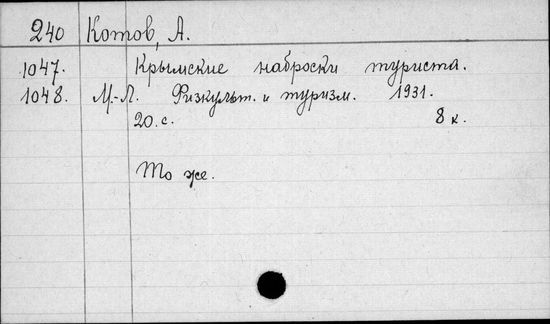 240 Котов, А.
1047. Крымские наброски туриста.
1048. М.-Л. Физкульт. и туризм. 1931.
20. с. 8 к.
То же.